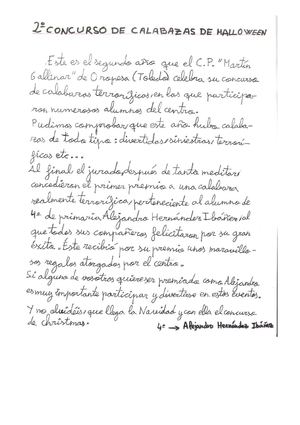 2º CONCURSO DE CALABAZAS DE HALLOWEEN
Este es el segundo año que el C.P. "Martín
Gallinar" de Oropesa (Toledo) celebra su concurso
de calabazas terroríficas, en los que participa-
ron numerosos alumnos del centro.
Pudimos comprobar, que este año hubo calaba-
zas de todo tipo: divertidas, siniestras, terrorí-
ficas etc...
Al final el jurado, después de tanto meditar,
concedieron el primer premio a una calabaza
realmente terrorífica, perteneciente al alumno de
4º de primaria, Alejandro Hernández Ibáñez, al
que todos sus compañeros felicitaron por su gran
éxito. Éste recibió por su premio unos maravillo-
sos regalos otorgados por el centro.
Si alguno de vosotros quiere ser premiado como Alejandro
es muy importante participar y divertirse en estos eventos.
Y no olvidéis, que llega la Navidad y con ella el concurso
de christmas.
4º → Alejandro Hernández Ibáñez